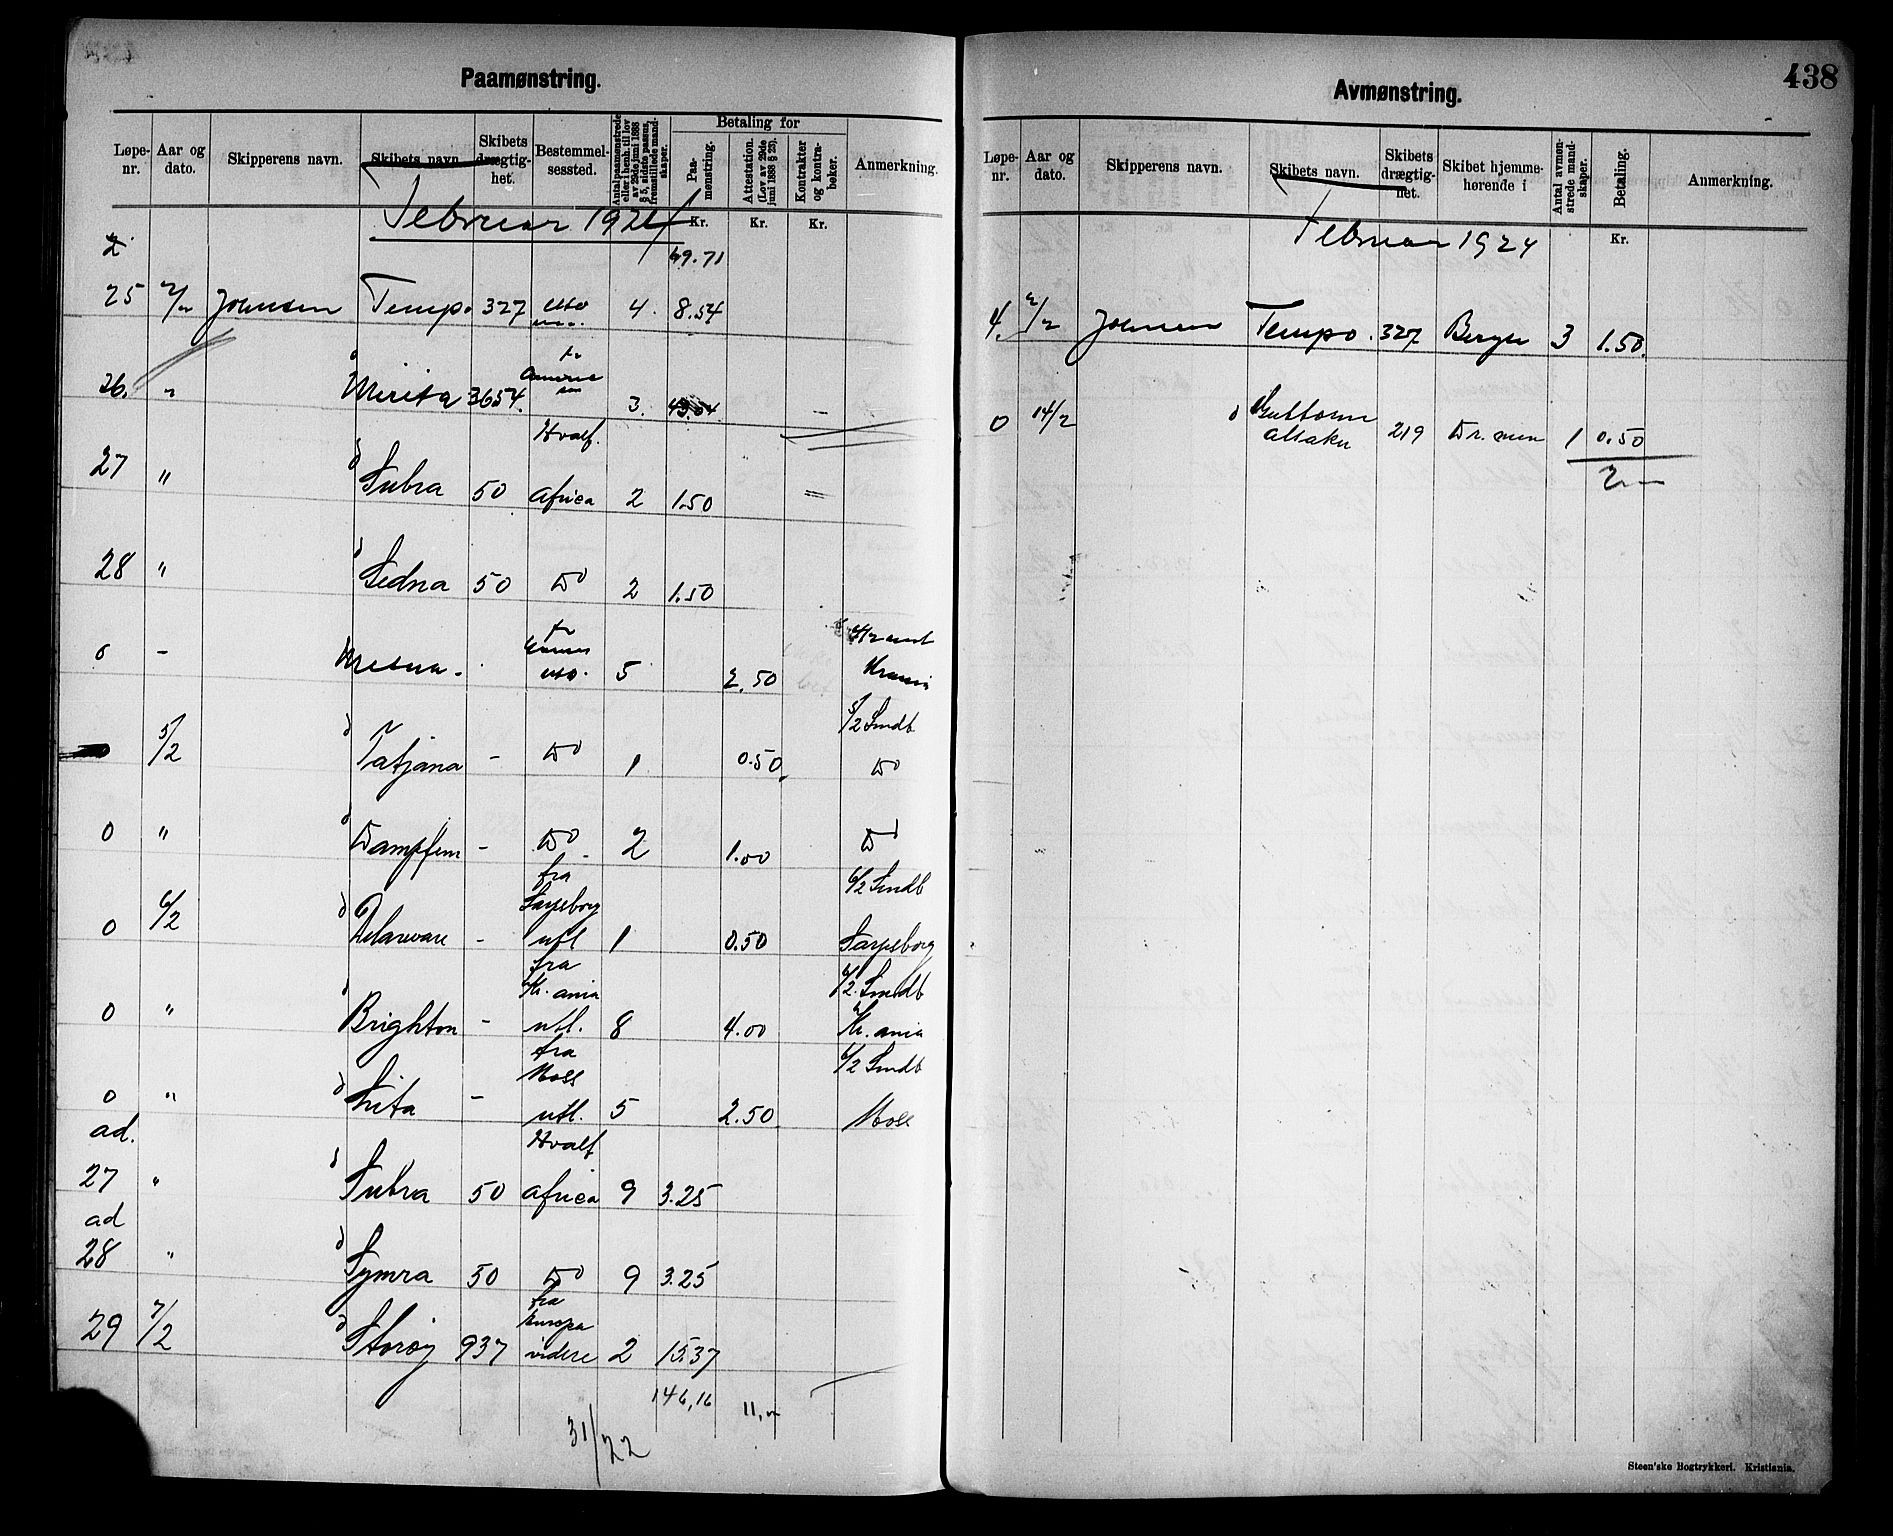 438
Paamønstring.
Løpe-nr. Aar og dato. Skipperens navn. Skibets navn. Skibets drægtig-het. Bestemmel-sessted. Antal paamønstrede eller i henh. til lov av 29de juni 1888 § 5, sidste passus, fremstillede mand-skaper. Betaling for Paa-mønstring. Attestation. (Lov av 29de juni 1888 § 29). Kontrakter og kontra-bøker. Anmerkning.
Februar 1924 Kr. Kr. Kr.
2 49.71
25 2/2 Johnsen Tempo 327 4. 8.54
26. " Mirita 3654. 3.
Hvalf.
27 " Subra 50 Africa 2 1.50
28 " Sedna 50 Do 2 1.50
0 - 5 2.50
5/2 Sndb
5/2 Tatjana - Do 1 0.50 Do
0 " - Do 2 1.00 Do
fra 6/2 Sndb
Sarpsborg
0 6/2 Delaware - utl 1 0.50 Sarpsborg
fra 6/2 Sndb
Kr.ania
0 " Brighton - utl. 8 4.00 Kr.ania
fra 6/2 Sndb
Moss
0 " Lita - utl. 5 2.50 Moss
ad. Hvalf
27 " Subra 50 Africa 9 3.25
ad
28 " Symra 50 Do 9 3.25
fra
Europa
29 7/2 Storøy 937 videre 2 15.37
146,16 11,-
31/22
Avmønstring.
Løpe-nr. Aar og dato. Skipperens navn. Skibets navn. Skibets drægtig-het. Skibet hjemme-hørende i Antal avmøn-strede mand-skaper. Betaling. Anmerkning.
Februar 1924 Kr.
4. 2/2 Johnsen Tempo. 327 Bergen 3 1.50.
0 14/2 Guttorm 219 Dr.men 1 0.50
2—
Steen'ske Bogtrykkeri. Kristiania.